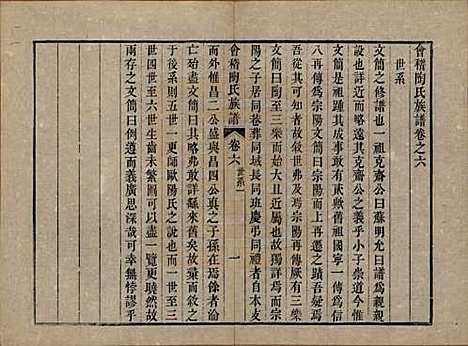 會稽陶氏族譜卷之六
世系
文簡之修譜也一祖克齋公曰蘇明允曰譜為親親
設也詳近而略遠其克齋公之義乎小子崇道今惟
文簡是祖踵其成非敢有貳敷舊祖國寧一傳為信
八再傳為宗陽文簡曰宗陽而上再遷之蹟吾疑焉
吾從其可知者故敘世弗及焉宗陽有子三榮有四
文簡曰陶至三榮而始大且近屬也故獨詳焉而宗
陽之子居同巷葬同域長同班慶弔同禮者自本支
會稽陶氏族譜 卷六 世系 一
而外惟昌二公盛與昌四公真之子孫在焉餘者淪
落殆盡文簡曰其略弗敢詳蘇來舊矣故棄而敘之
于後系則五世一更歸歐陽氏之說也而一世至三
世四世至六世生年未繁圖可以盡一覽更噍更晰
兩存之文簡曰例道而義廣思深哉可幸無悖謬乎